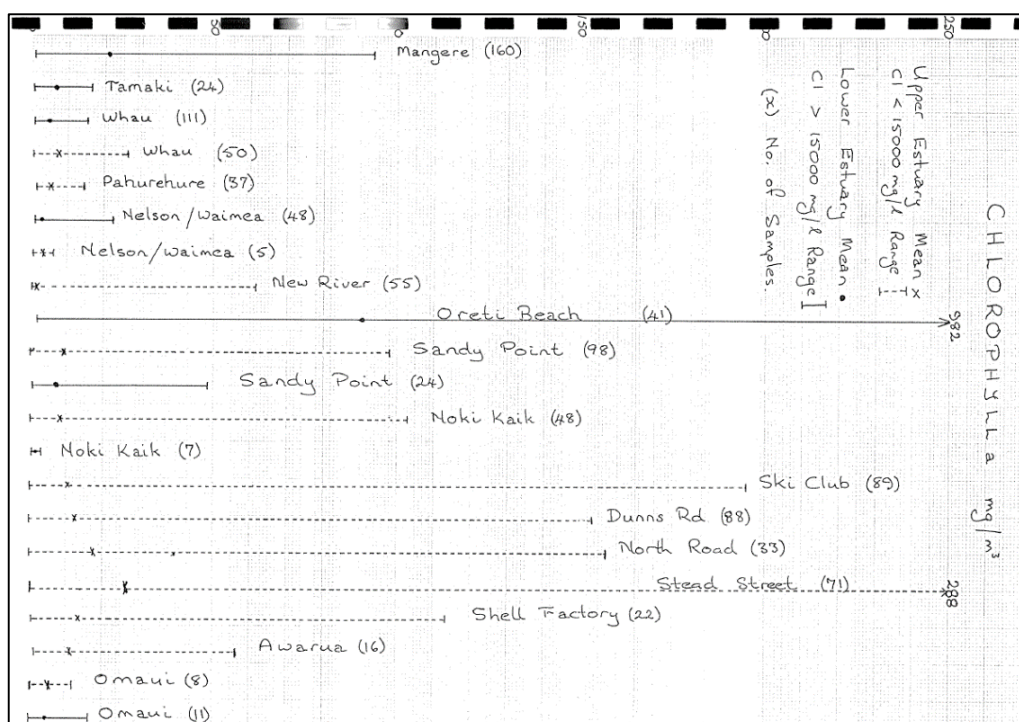 50
150
250
Mangere (160)
Tamaki (24)
Whau (111)
Whau (50)
Pahurehure (37)
Nelson/Waimea (48)
Nelson/Waimea (5)
New River (55)
Oreti Beach (41)
982
Sandy Point (98)
Sandy Point (24)
Noki Kaik (48)
Noki Kaik (7)
Ski Club (89)
Dunns Rd. (88)
North Road (33)
Stead Street (71)
288
Shell Factory (22)
Awarua (16)
Omaui (8)
Omaui (11)
Upper Estuary Mean x
Cl < 15000 mg/l Range
Lower Estuary Mean •
Cl > 15000 mg/l Range
(x) No. of Samples.
CHLOROPHYLL a mg/m³